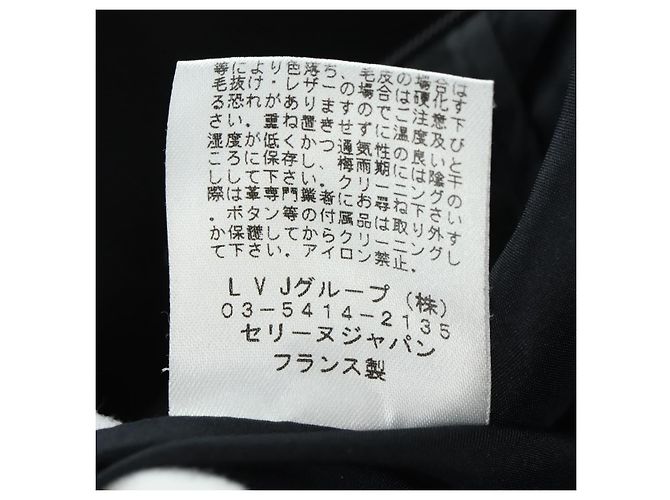 等により色落ち、毛皮の場合は
毛抜け・レザーの場合硬化す
る恐れがありますのでご注意下
さい。重ね置きせずに温度及び
湿度が低くかつ通気性の良いと
ころに保存し、梅雨期には陰干
しして下さい。クリーニングの
際は革専門業者にお尋ね下さい
。ボタン等の付属品は取り外す
か保護してからクリーニングし
て下さい。アイロン禁止。
LVJグループ(株)
03-5414-2135
セリーヌジャパン
フランス製